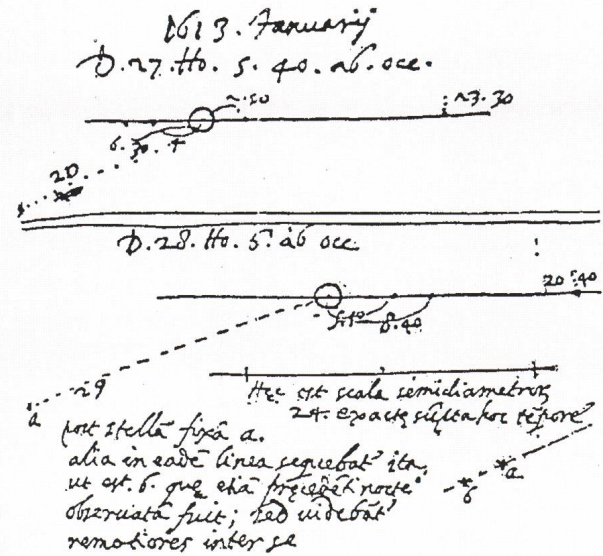 1613. Januarij
D. 27. Ho. 5. 40. ab. occ.
.50
.30
6. 30. 4
20
D. 28. Ho. 5. ab occ.
20 : 40
5.10 8.40
29
a
Hec est scala semidiametrorũ
24. exacte sũpta hoc tẽpore
post stellã fixã a.
alia in eadẽ linea sequebat ita
ut est. b. que etiã precedẽti nocte
observata fuit; sed videbãt
remotiores inter se
a
b